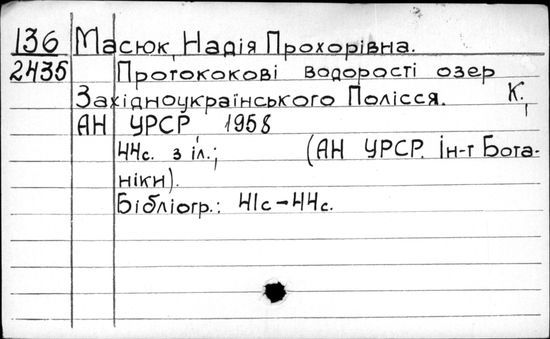 136 Масюк, Надія Прохорівна.
2435 Протококові водорості озер
Західноукраїнського Полісся. К.,
АН УРСР 1958
44с. з іл.; (АН УРСР. Ін-т Бота-
ніки).
Бібліогр.: 41с-44с.